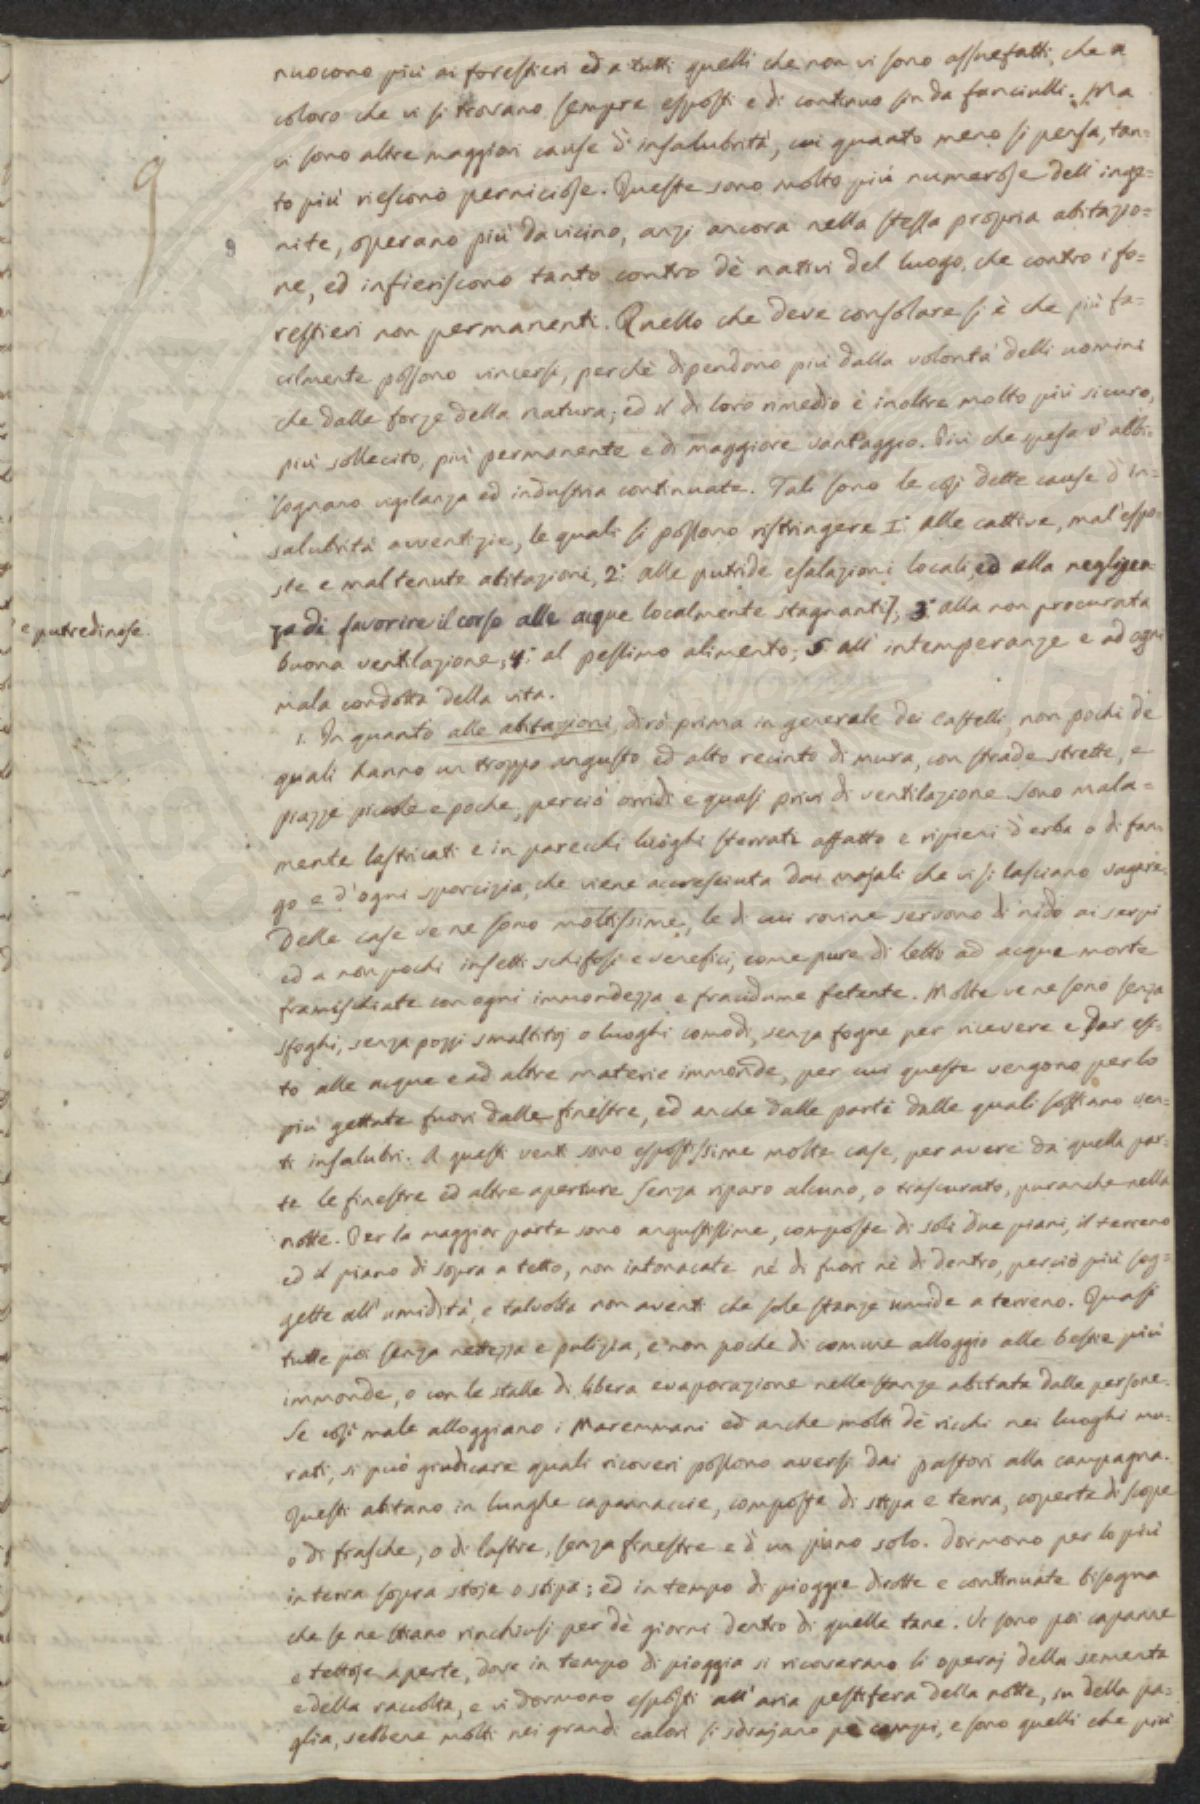 9
nuocono più ai forestieri ed a tutti quelli che non vi sono assuefatti, che a
coloro che vi si trovano sempre esposti e di continuo sin da fanciulli. Ma
vi sono altre maggiori cause d'insalubrità, cui quanto meno si pensa, tan=
to più riescono perniciose. Queste sono molto più numerose dell'inge=
nite, operano più da vicino, anzi ancora nella stessa propria abitazio=
ne, ed infieriscono tanto contro dè nativi del luogo, che contro i fo=
restieri non permanenti. Quello che deve consolare si è che più fa=
cilmente possono vincersi, perchè dipendono più dalla volontà delli uomini
che dalle forze della natura; ed il di loro rimedio è inoltre molto più sicuro,
più sollecito, più permanente e di maggiore vantaggio. Più che spesa v'abbi=
sognano vigilanza ed industria continuate. Tali sono le così dette cause d'in=
salubrità avventizie, le quali si possono ristringere I: alle cattive, mal'espo=
ste e mal tenute abitazioni, 2: alle putride esalazioni locali, ed alla negligen=
za di favorire il corso alle acque localmente stagnanti], 3: alla non procurata
e putredinose.
buona ventilazione, 4: al pessimo alimento, 5: all'intemperanze e ad ogni
mala condotta della vita.
1. In quanto alle abitazioni, dirò prima in generale dei Castelli, non pochi dè
quali hanno un troppo angusto ed alto recinto di mura, con strade strette, e
piazze piccole e poche, perciò orridi e quasi privi di ventilazione. Sono mala=
mente lastricati e in parecchi luoghi sterrati affatto e ripieni d'erba o di fan=
go e d'ogni sporcizia, che viene accresciuta dai majali che vi si lasciano vagare.
Delle case ve ne sono moltissime, le di cui rovine servono di nido ai serpi
ed a non pochi insetti schifosi e venefici, come pure di letto ad acque morte
framischiate con ogni immondezza e fracidume fetente. Molte ve ne sono senza
sfoghi, senza pozzi smaltitoj o luoghi comodi, senza fogne per ricevere e dar esi=
to alle acque e ad altre materie immonde, per cui queste vengono per lo
più gettate fuori dalle finestre, ed anche dalle parti dalle quali soffiano ven=
ti insalubri. A questi venti sono espostissime molte case, per avere da quella par=
te le finestre ed altre aperture senza riparo alcuno, o trascurato, pur anche nella
notte. Per la maggior parte sono angustissime, composte di soli due piani, il terreno
ed il piano di sopra a tetto, non intonacate nè di fuori nè di dentro, perciò più sog=
gette all'umidità, e talvolta non aventi che sole stanze umide a terreno. Quasi
tutte poi senza nettezza e pulizia, e non poche di comune alloggio alle bestie più
immonde, o con le stalle di libera evaporazione nelle stanze abitate dalle persone.
Se così male alloggiano i Maremmani ed anche molti dè ricchi nei luoghi mu=
rati, si può giudicare quali ricoveri possono aversi dai pastori alla campagna.
Questi abitano in lunghe capannaccie, composte di stipa e terra, coperte di scope
o di frasche, o di lastre, senza finestre e d'un piano solo. Dormono per lo più
in terra sopra stoje o stipa; ed in tempo di pioggie dirotte e continuate bisogna
che se ne stiano rinchiusi per dè giorni dentro di quelle tane. Vi sono poi capanne
e tettoje aperte, dove in tempo di pioggia si ricoverano li operaj della sementa
e della raccolta, e vi dormono esposti all'aria pestifera della notte, su della pa=
glia, sebbene molti nei grandi calori si sdrajano pè campi, e sono quelli che più